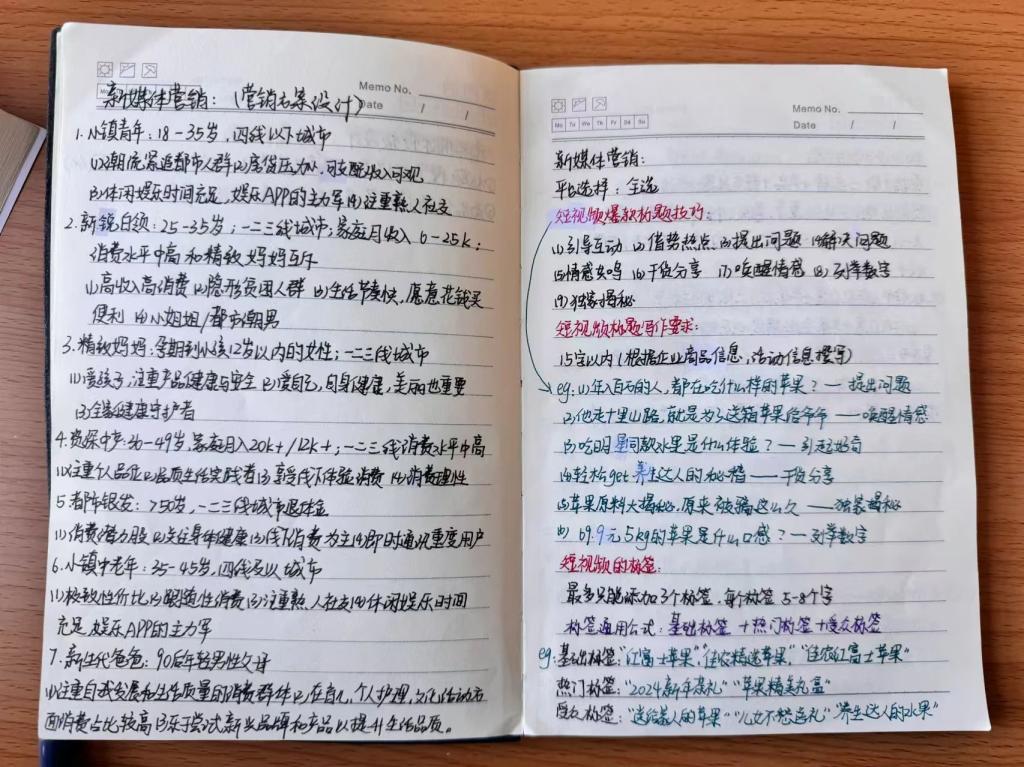 Memo No.
Date / /
新媒体营销：（营销方案设计）
1.小镇青年：18-35岁，四线以下城市
(1)潮流紧追都市人群(2)房贷压力小，可支配收入可观
(3)休闲娱乐时间充足，娱乐APP的主力军(4)注重熟人社交
2.新锐白领：25-35岁；一二三线城市；家庭月收入6-25k；
消费水平中高和精致妈妈互斥
(1)高收入高消费(2)隐形贫困人群(3)生活节奏快，愿意花钱买
便利(4)小姐姐/都市潮男
3.精致妈妈：孕期到小孩12岁以内的女性；一二三线城市
(1)爱孩子，注重产品健康与安全(2)爱自己，自身健康，美丽也重要
(3)全家健康守护者
4.资深中产：36-49岁，家庭月入20k+/12k+；一二三线消费水平中高
(1)注重个人品位(2)品质生活实践者(3)享受线下体验消费(4)消费理性
5都市银发：>50岁，一二三线城市退休金
(1)消费潜力股(2)关注身体健康(3)线下消费为主(4)即时通讯重度用户
6.小镇中老年：35-45岁，四线及以城市
(1)极致性价比(2)跟随性消费(3)注重熟人社交(4)休闲娱乐时间
充足，娱乐APP的主力军
7.新生代爸爸：90后年轻男性父母
(1)注重自我发展和生活质量的消费群体(2)在自己，个人护理，文化活动方
面消费占比较高(3)乐于尝试新兴品牌和产品以提升生活品质。
Memo No.
Mo Tu We Th Fr Sa Su
Date / /
新媒体营销：
平台选择：全选
短视频爆款标题技巧：
(1)引导互动 (2)借势热点 (3)提出问题 (4)解决问题
(5)情感共鸣 (6)干货分享 (7)唤醒情感 (8)列举数字
(9)独家揭秘
短视频标题写作要求：
15字以内（根据企业商品信息，活动信息撰写）
eg:(1)年入百万的人，都在吃什么样的苹果？—提出问题
(2)他走十里山路，就是为了这箱苹果给爷爷——唤醒情感
(3)吃明星同款水果是什么体验？—引起好奇
(4)轻松get养生达人的秘籍——干货分享
(5)苹果原料大揭秘，原来被骗这么久——独家揭秘
69.9元5kg的苹果是什么口感？—列举数字
短视频的标签：
最多只能添加3个标签，每个标签5-8个字
标签通用公式：基础标签+热门标签+受众标签
eg:基础标签："红富士苹果"，"佳农精选苹果"，"佳农红富士苹果"
热门标签："2024新年送礼""苹果精美礼盒"
受众标签："送给家人的苹果""儿女不愁送礼""养生达人的水果"